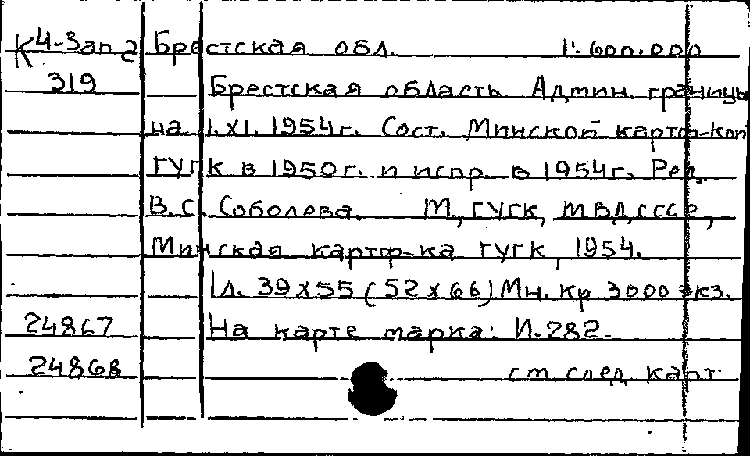 К4-Зап.2 Брестская обл. 1:600.000
319 Брестская область. Админ. границы
на 1.XI.1954г. Сост. Минской картф-кой
ГУГК в 1950г. и испр. в 1954г. Ред.
В.С. Соболева. М., ГУГК, МВД,СССР,
Минская картф-ка ГУГК, 1954.
1л. 39х55 (52х66) Мн. кр 3000 экз.
24867 На карте марка: И-282.
24868 см след. карт